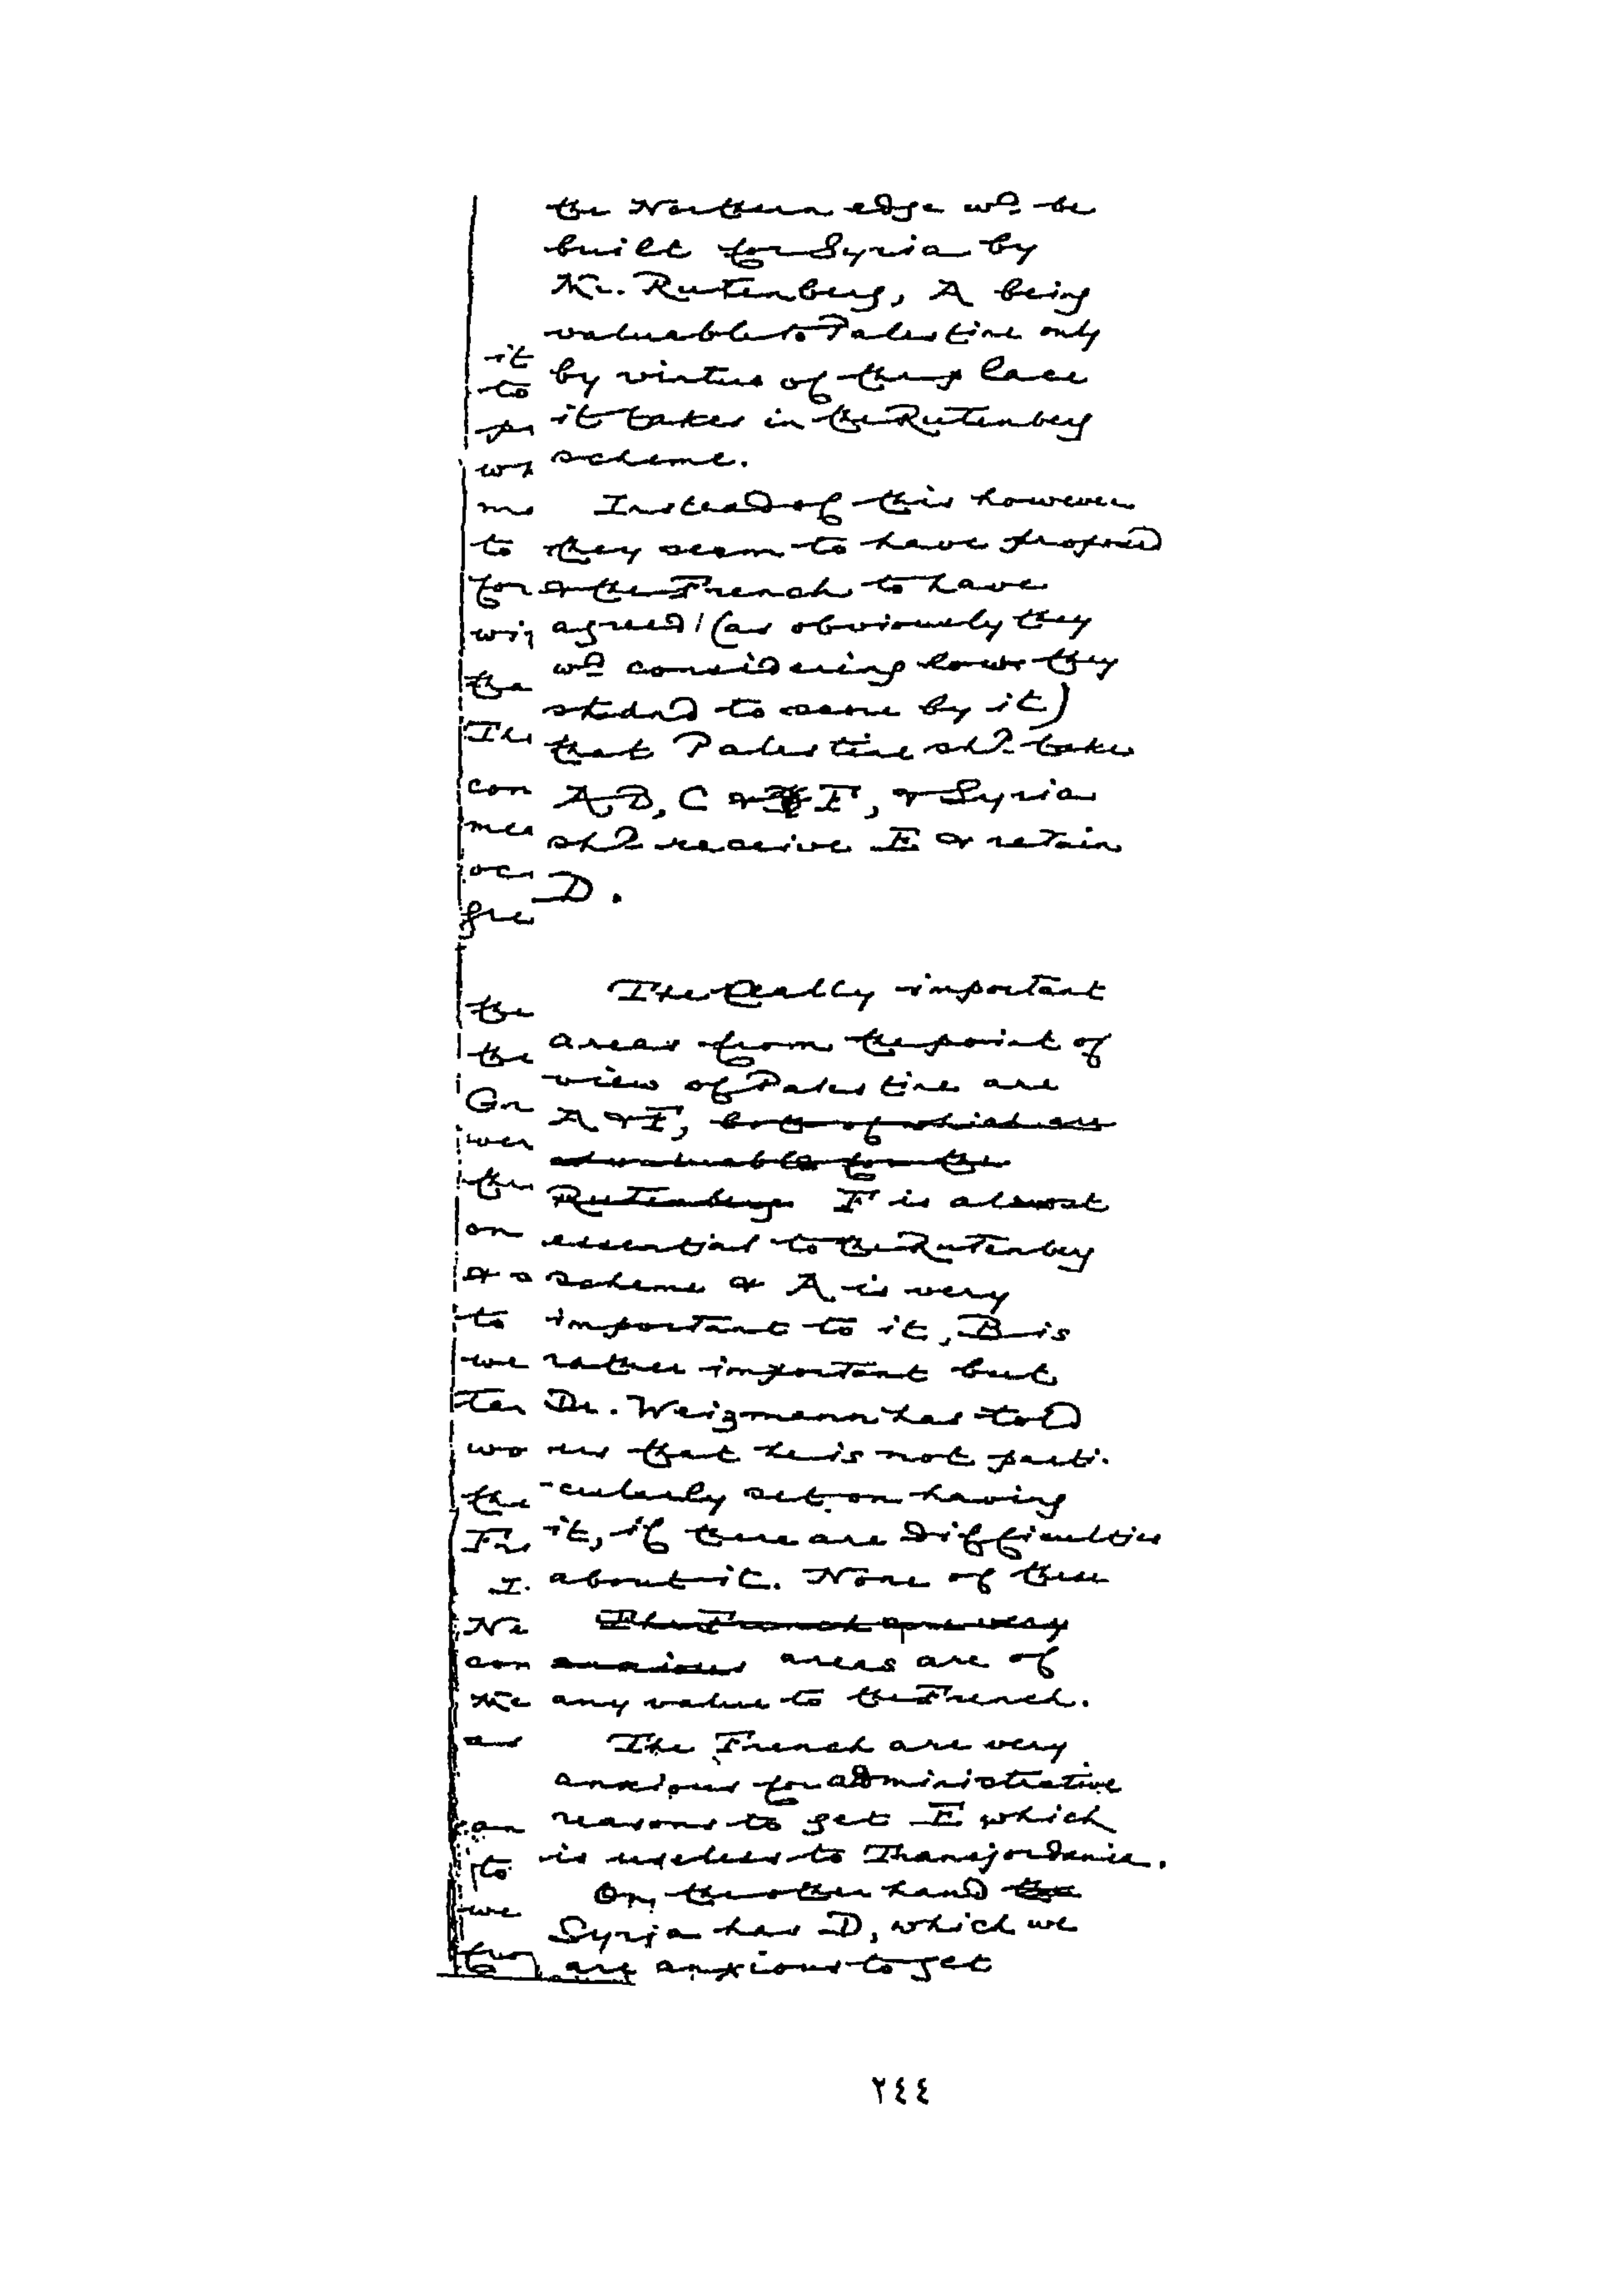 the Northern edge wd. be
built for Syria by
Mr. Rutenberg, A being
valuable to Palestine only
by virtue of the place
it takes in the Rutenberg
scheme.
Instead of this however
they seem to have proposed
& the French to have
agreed (as obviously they
wd considering how they
stand to score by it)
that Palestine shd. take
A, B, C & F, & Syria
shd. receive E & retain
D.
The really important
areas from the point of
view of Palestine are
A & F, both of which are
as valuable for the
Rutenberg F is almost
essential to the Rutenberg
scheme & A is very
important to it, B is
rather important but
Dr. Weizmann has told
us that he is not parti-
-cularly set on having
it, if there are difficulties
about it. None of these
The French are very
anxious areas are of
any value to the French.
The French are very
anxious for administrative
reasons to get E which
is useless to Transjordania.
On the other hand the
Syria has D, which we
are anxious to get
it
to
me
to
for
the
con
mea
the
the
Gr
wer
the
on
to
we
wo
the
I.
Ne
con
an
to
we
٢٤٤